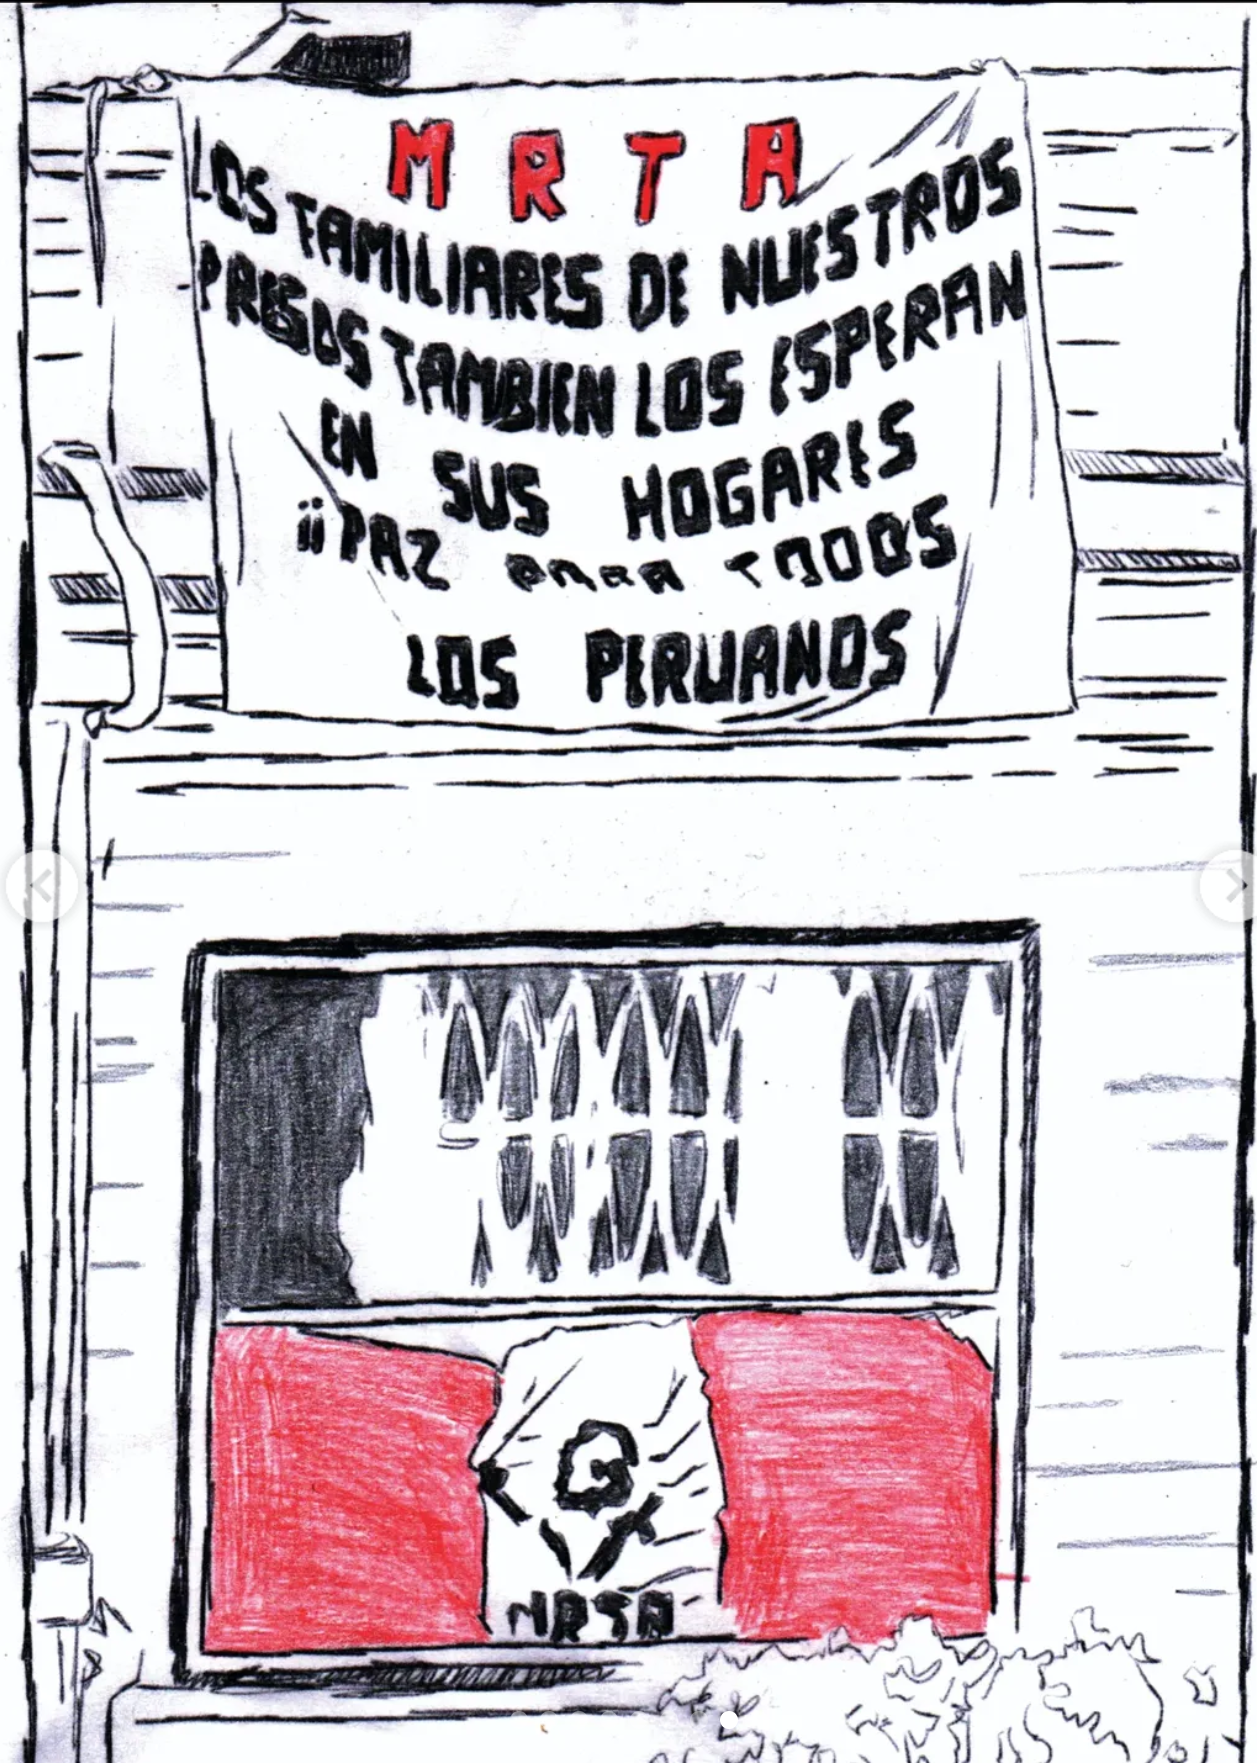 MRTA
LOS FAMILIARES DE NUESTROS
PRESOS TAMBIEN LOS ESPERAN
EN SUS HOGARES
¡¡PAZ PARA TODOS
LOS PERUANOS
MRTA